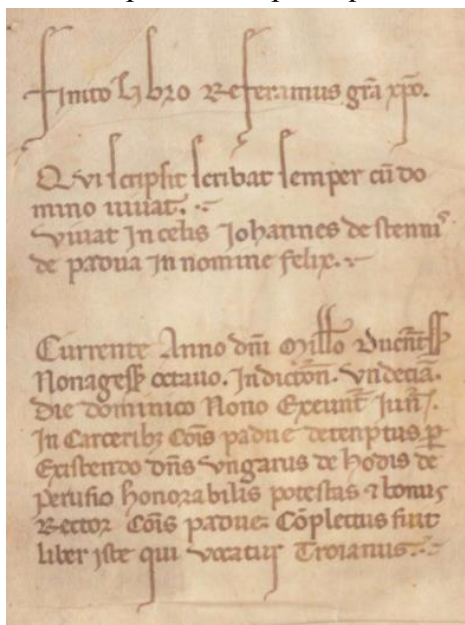 finito libro Referamus grã xpõ.
Qvi scripsit scribat semper cũ do
mino uiuat.
viuat In celis Johannes de stennis
de padua In nomine felix.
Currente Anno dñi Millo Ducentess
Nonagess octauo. Indictoñ. vndeciã.
Die dominico Nono Exeunte Juñ.
In Carceribꝫ Cõis padue detenptus ꝑ
Existendo dñs vngarus de hodis de
perusio honorabilis potestas ⁊ bonus
Rector Cõis padue: Cõplectus fuit
liber iste qui vocatur Troianus.